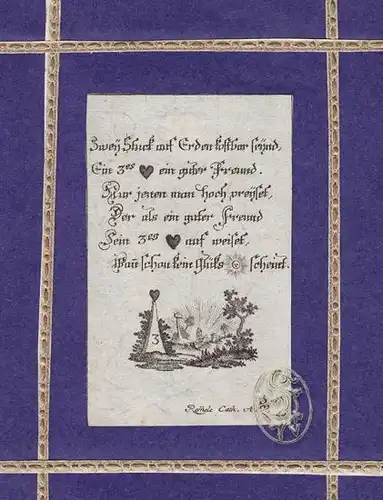 Zweÿ Stuck auf Erden kostbar seÿnd,
Ein 3es ♥ ein guter Freund.
Nur jenen man hoch preÿset,
Der als ein guter Freund
Sein 3es ♥ auf weiset,
Wañ schon kein Glüks scheint.
3
Cath.